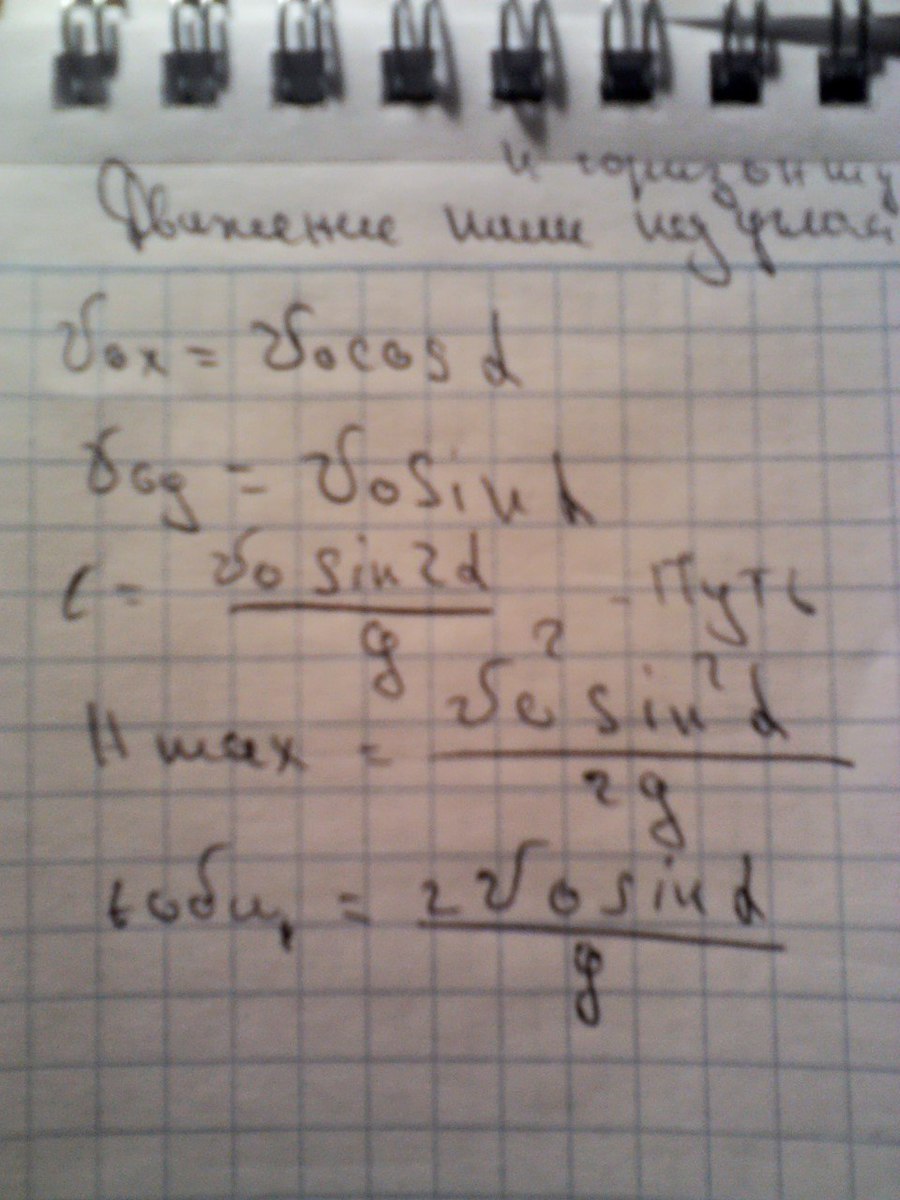 к горизонту
Движение тела под углом
v₀ₓ = v₀cos α
v₀y = v₀ sin α
l = v₀ sin 2α / g - Путь
H max = v₀² sin² α / 2g
t общ, = 2 v₀ sin α / g